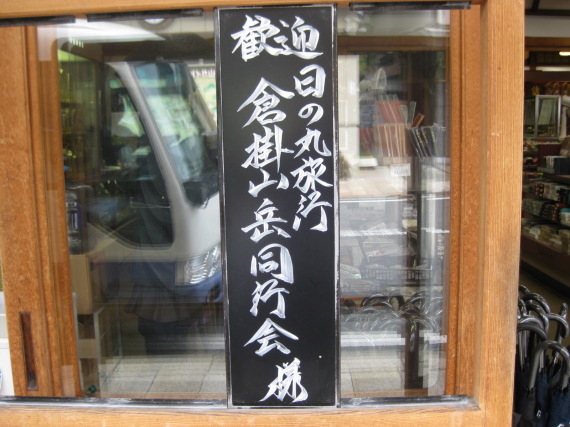 歓迎
日の丸旅行
倉掛山岳同行会 様